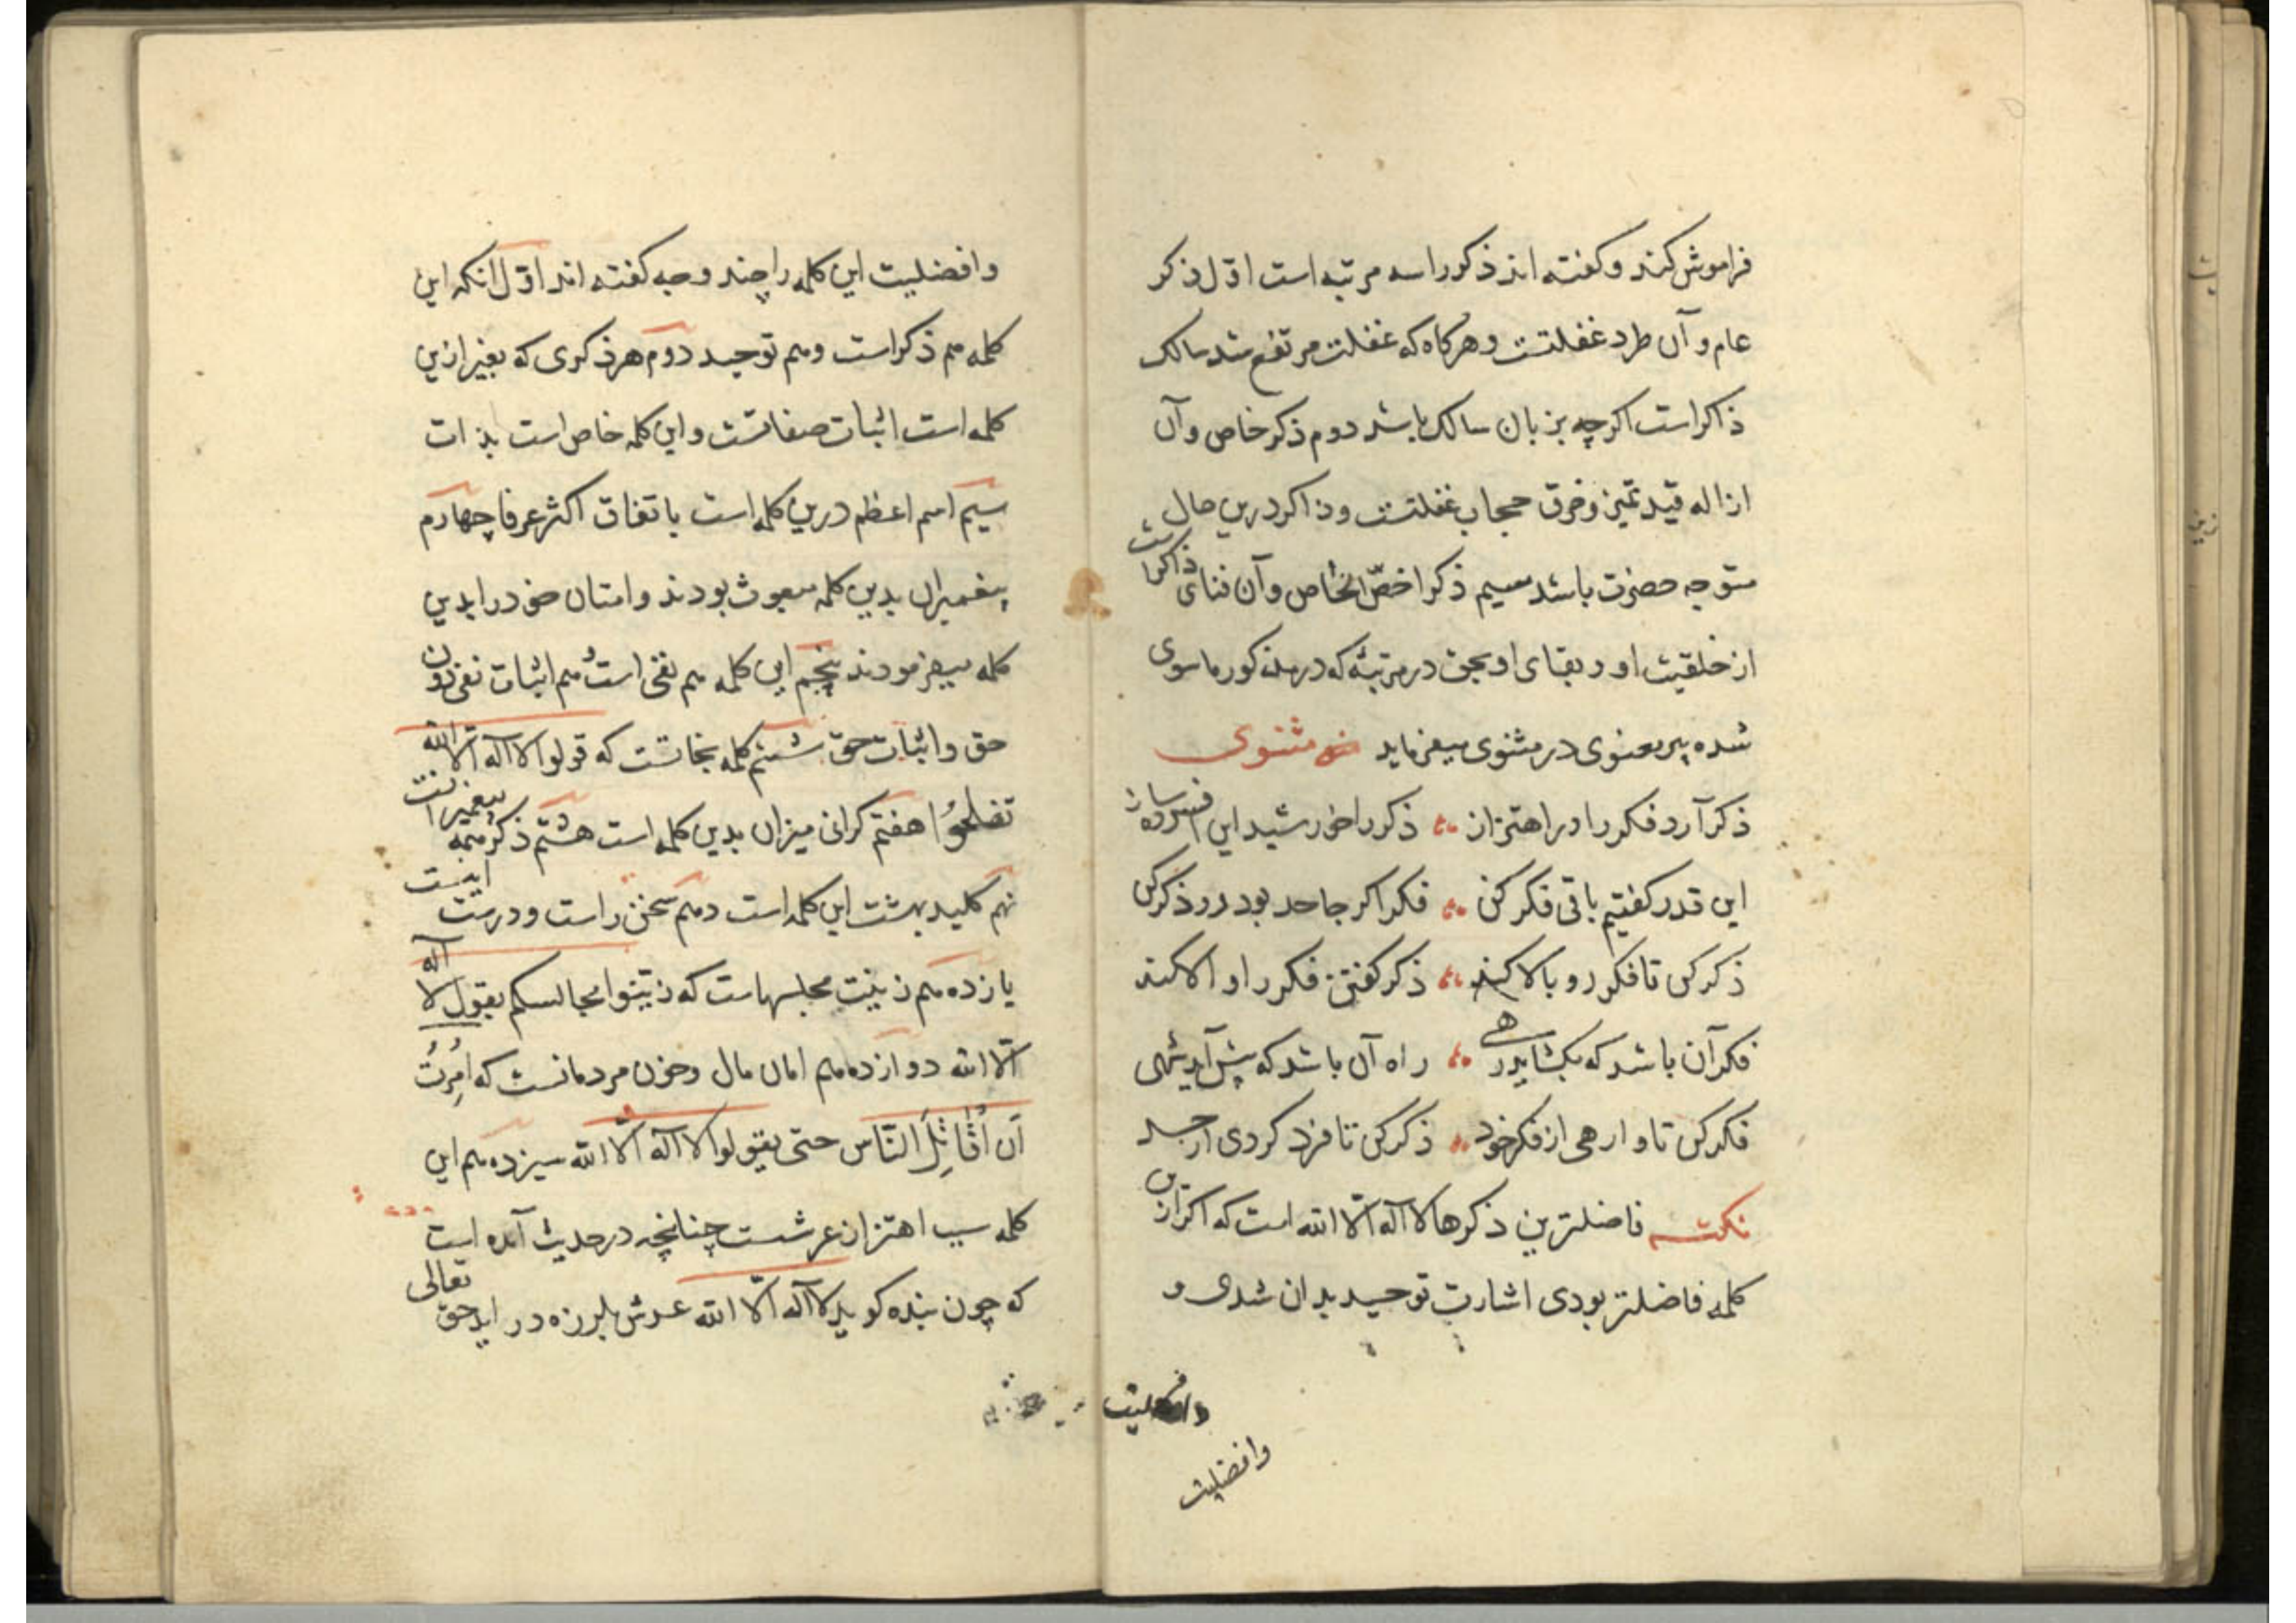 فراموش کند و کفته اند ذکر را سه مرتبه است اوّل ذکر
عام و آن طرد غفلتست و هرکاه که غفلت مرتفع شد سالک
ذاکر است اکرچه بزبان ساکت باشد دوم ذکر خاص و آن
ازاله قید تمیز و خرق حجاب غفلتست و ذاکر درین حال
متوجه حضرت باشد سیم ذکر اخصّ الخاص و آن فنای ذاکر است
از خلقیت او و بقای او بحق در مرتبهٔ که در مذکور ماسوی
شده پیر معنوی در مثنوی میفرماید مثنوی
ذکر آرد فکر را در اهتزاز ذکر را خورشید این افسرده ساز
این قدر کفتیم باقی فکر کن فکر اکر جامد بود رو ذکر کن
ذکر کن تا فکر رو بالا کند ذکر کفتن فکر را والا کند
فکر آن باشد که بکشاید رهی راه آن باشد که پیش آید شهی
فکر کن تا وارهی از فکر خود ذکر کن تا فرد کردی از جسد
نکته فاضلترین ذکرها لا آله الّا الله است که اکر ازین
کلمه فاضلتر بودی اشارت توحید بدان شدی و
وافضلیت
وافضلیت
وافضلیت این کلمه را چند وجه کفته اند اوّل انکه این
کلمه هم ذکر است و هم توحید دوم هر ذکری که بغیر ازین
کلمه است اثبات صفاتست و این کلمه خاص است بذات
سیم اسم اعظم درین کلمه است باتفاق اکثر عرفا چهارم
پیغمبران بدین کلمه مبعوث بودند و امتان خود را بدین
کلمه میفرمودند پنجم این کلمه هم نفی است و هم اثبات نفی دون
حق و اثبات حق ششم کلمه نجاتست که قولوا لا آله الّا الله
تفلحوُا هفتم کرانی میزان بدین کلمه است هشتم ذکر همه پیغمبرانست
نهم کلید بهشت این کلمه است دهم سخن راست و درست اینست
یازدهم زینت مجلسهاست که زیّنوا مجالسکم بقول لا آله
الّا الله دوازدهم امان مال و خون مردمانست که اُمِرتُ
اَن اُقٰاتِلَ النّاس حتی یقولوا لا آله الّا الله سیزدهم این
کلمه سبب اهتزاز عرشست چنانچه در حدیث آمده است
که چون بنده کوید لا آله الّا الله عرش بلرزه در اید حق تعالی